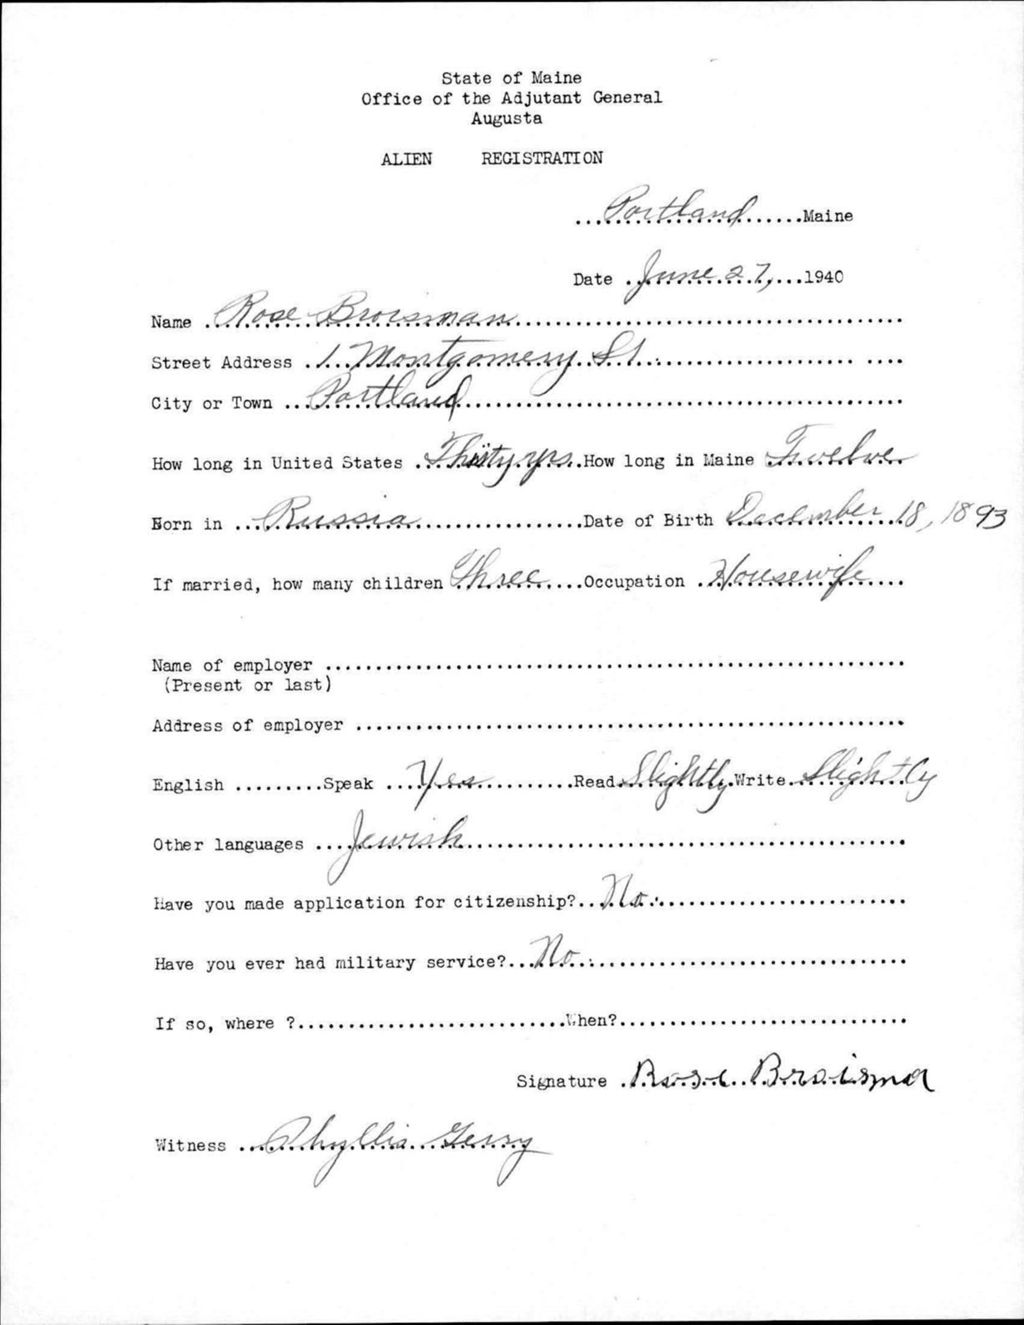 State of Maine
Office of the Adjutant General
Augusta
ALIEN REGISTRATION
...Portland......Maine
Date .June 27,...1940
Name .Rose Broisman
Street Address .1 Montgomery St.
City or Town ..Portland
How long in United States .Thirty yrs..How long in Maine Twelve
Born in ...Russia...Date of Birth December 18, 1893
If married, how many children Three....Occupation .Housewife....
Name of employer
(Present or last)
Address of employer
English .........Speak ...Yes...Read Slightly Write Slightly
Other languages ...Jewish
Have you made application for citizenship?..No.
Have you ever had military service?..No.
If so, where ?...When?
Signature .Rose Broisma
Witness ..Phyllis Gerry